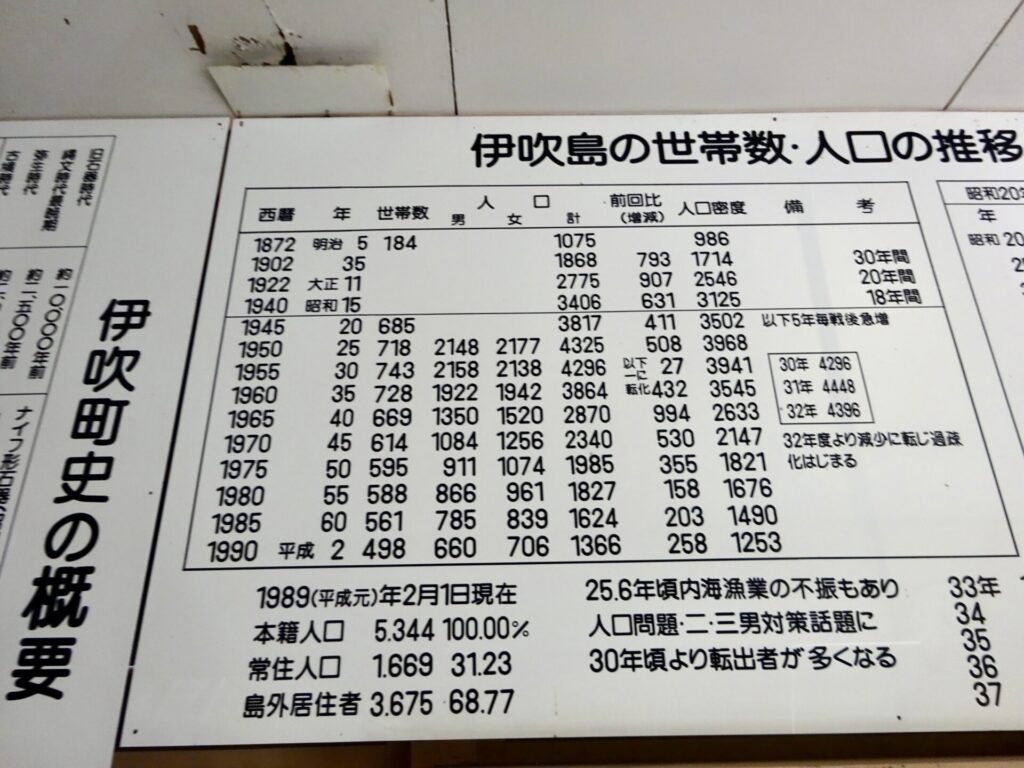 伊吹島の世帯数・人口の推移
西暦 年 世帯数 人口 男 女 計 前回比(増減) 人口密度 備考
1872 明治 5 184 1075 986
1902 35 1868 793 1714 30年間
1922 大正 11 2775 907 2546 20年間
1940 昭和 15 3406 631 3125 18年間
1945 20 685 3817 411 3502 以下5年毎戦後急増
1950 25 718 2148 2177 4325 508 3968
1955 30 743 2158 2138 4296 以下一に転化 27 3941
1960 35 728 1922 1942 3864 432 3545
1965 40 669 1350 1520 2870 994 2633
1970 45 614 1084 1256 2340 530 2147
1975 50 595 911 1074 1985 355 1821
1980 55 588 866 961 1827 158 1676
1985 60 561 785 839 1624 203 1490
1990 平成 2 498 660 706 1366 258 1253
30年 4296
31年 4448
32年 4396
32年度より減少に転じ過疎
化はじまる
1989(平成元)年2月1日現在
本籍人口 5.344 100.00%
常住人口 1.669 31.23
島外居住者 3.675 68.77
25.6年頃内海漁業の不振もあり
人口問題・二・三男対策話題に
30年頃より転出者が多くなる
33年
34
35
36
37
昭和20年
年
昭和 20
伊吹町史の概要
旧石器時代
縄文時代最晩期
弥生時代
古墳時代
約一〇、〇〇〇年前
約二、五〇〇年前
ナイフ形石器